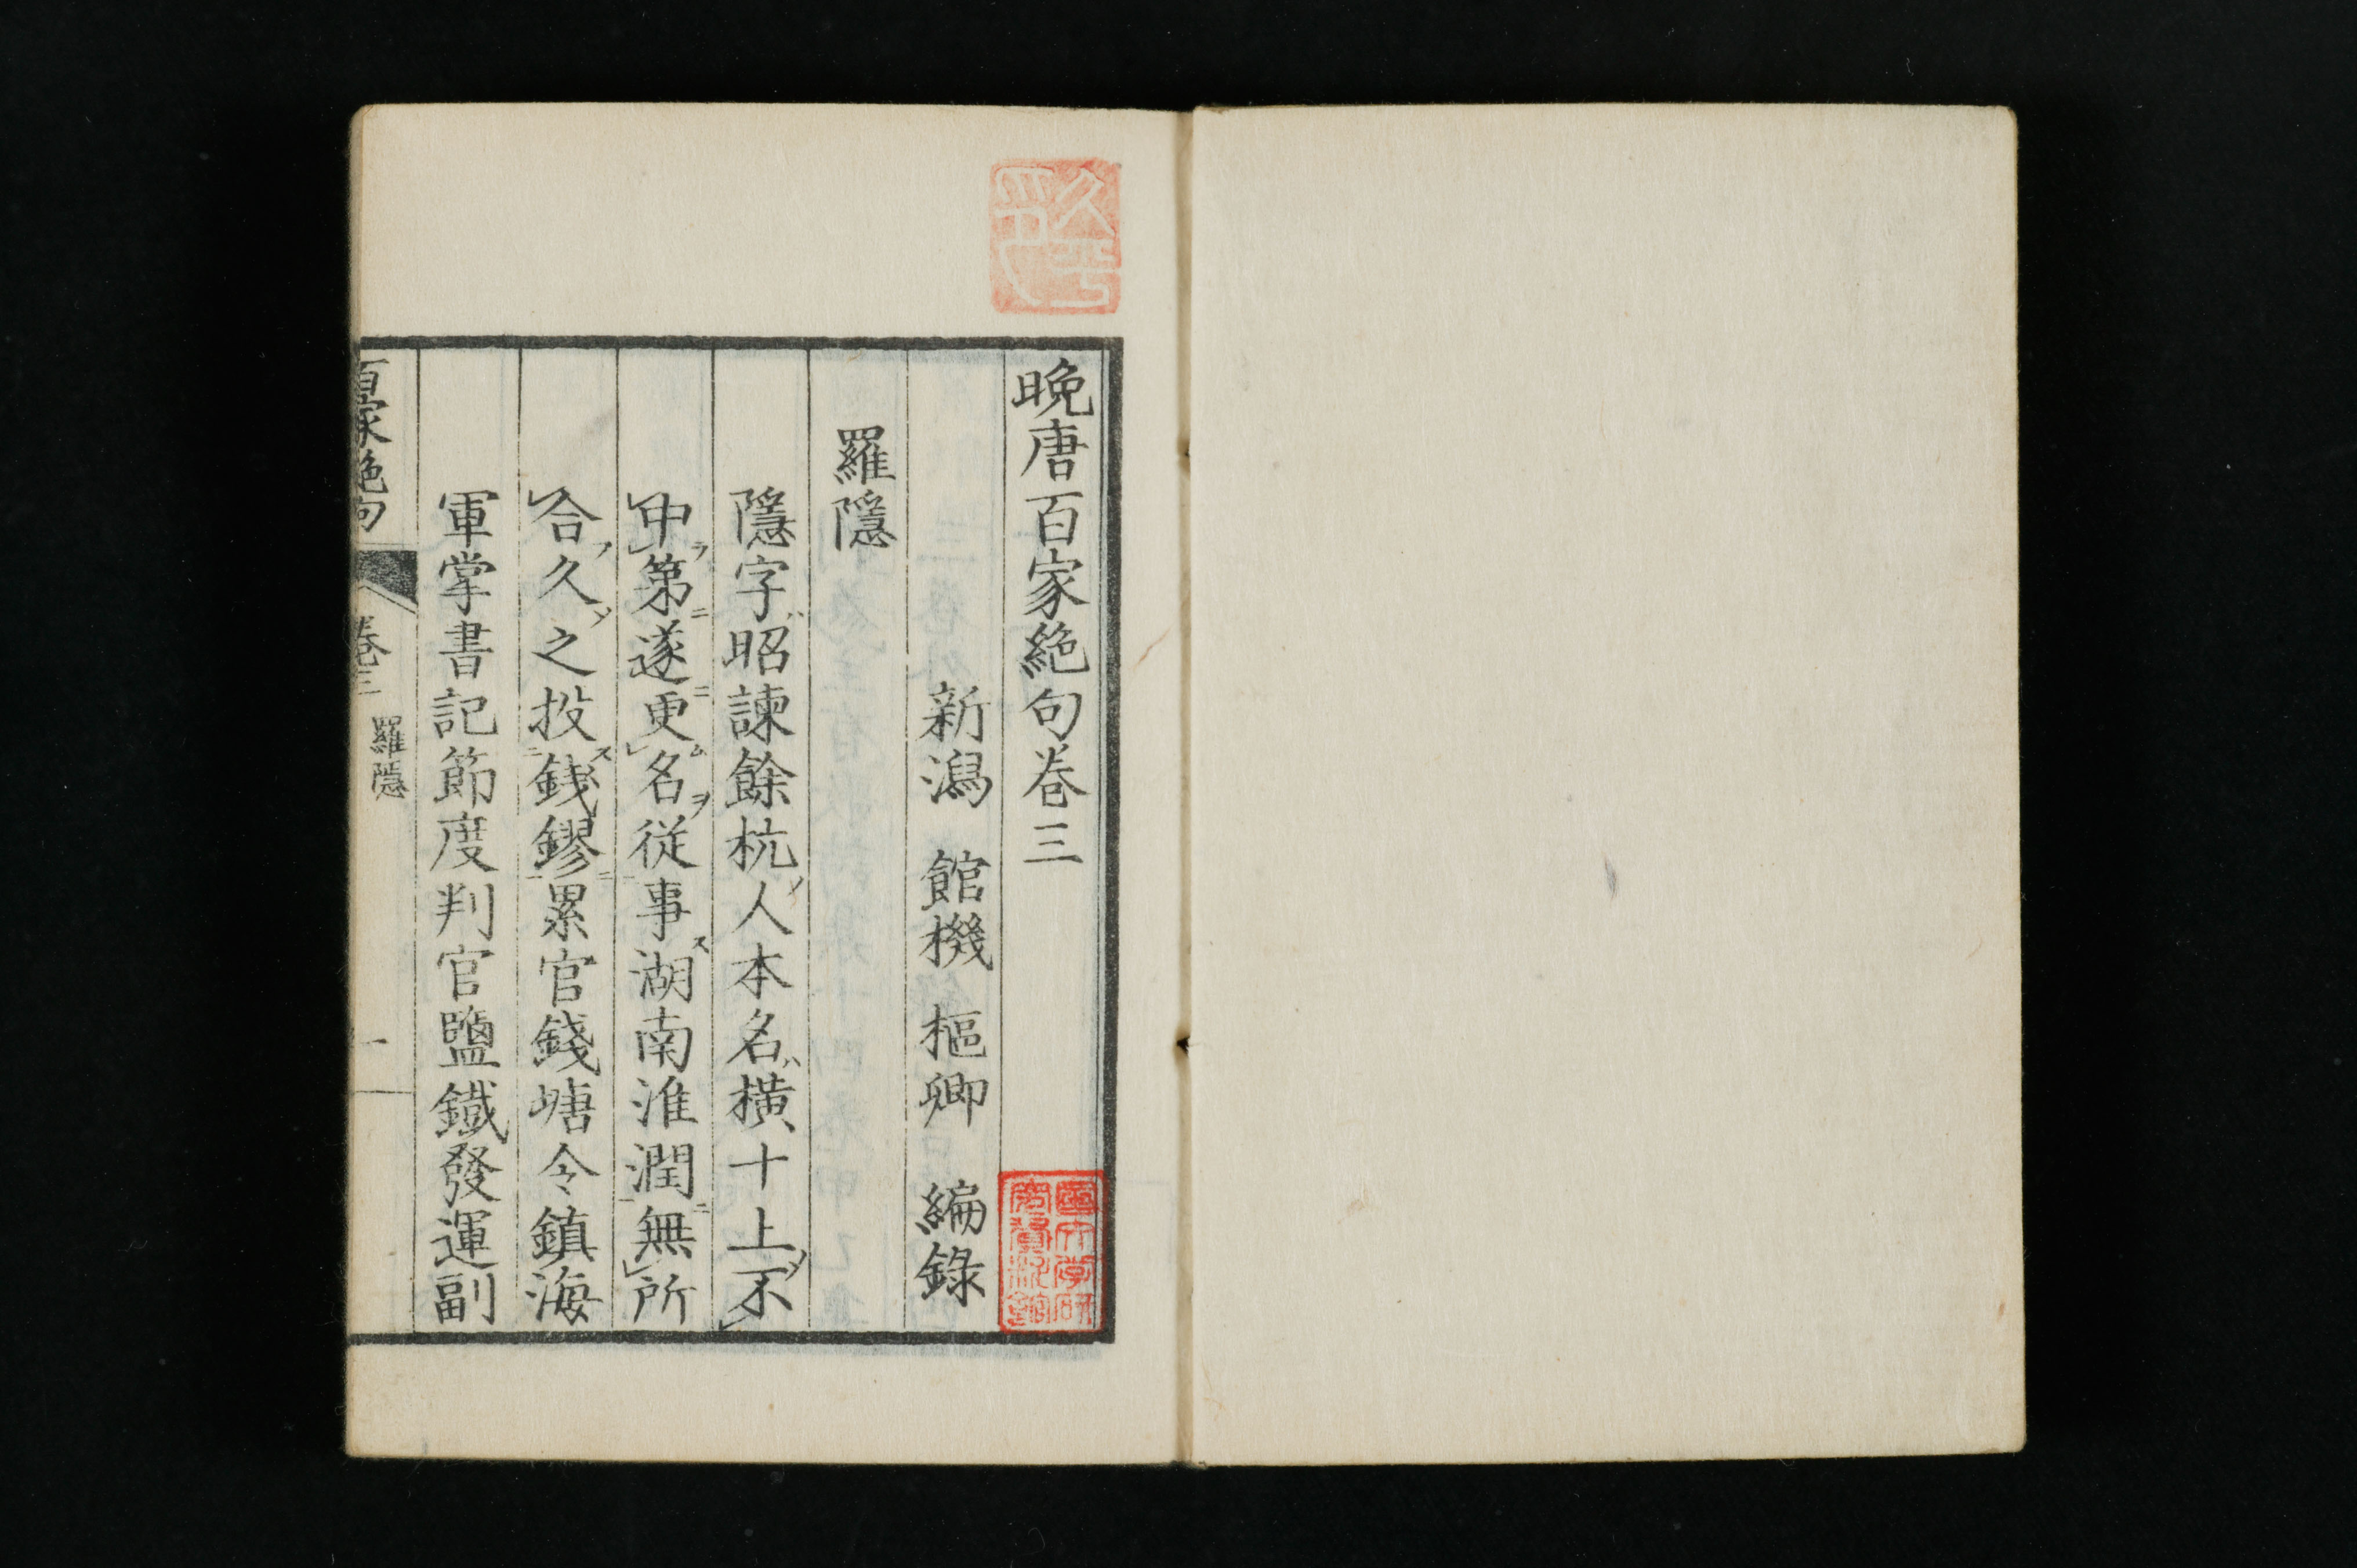 晩唐百家絶句巻三
新潟 館機 樞卿 編錄
羅隱
隱字昭諫餘杭人本名橫十上不
中第遂更名從事湖南淮潤無所
合久之投錢鏐累官錢塘令鎮海
軍掌書記節度判官鹽鐵發運副
百家絶句 巻三 羅隱 一
國文学研
究資料館